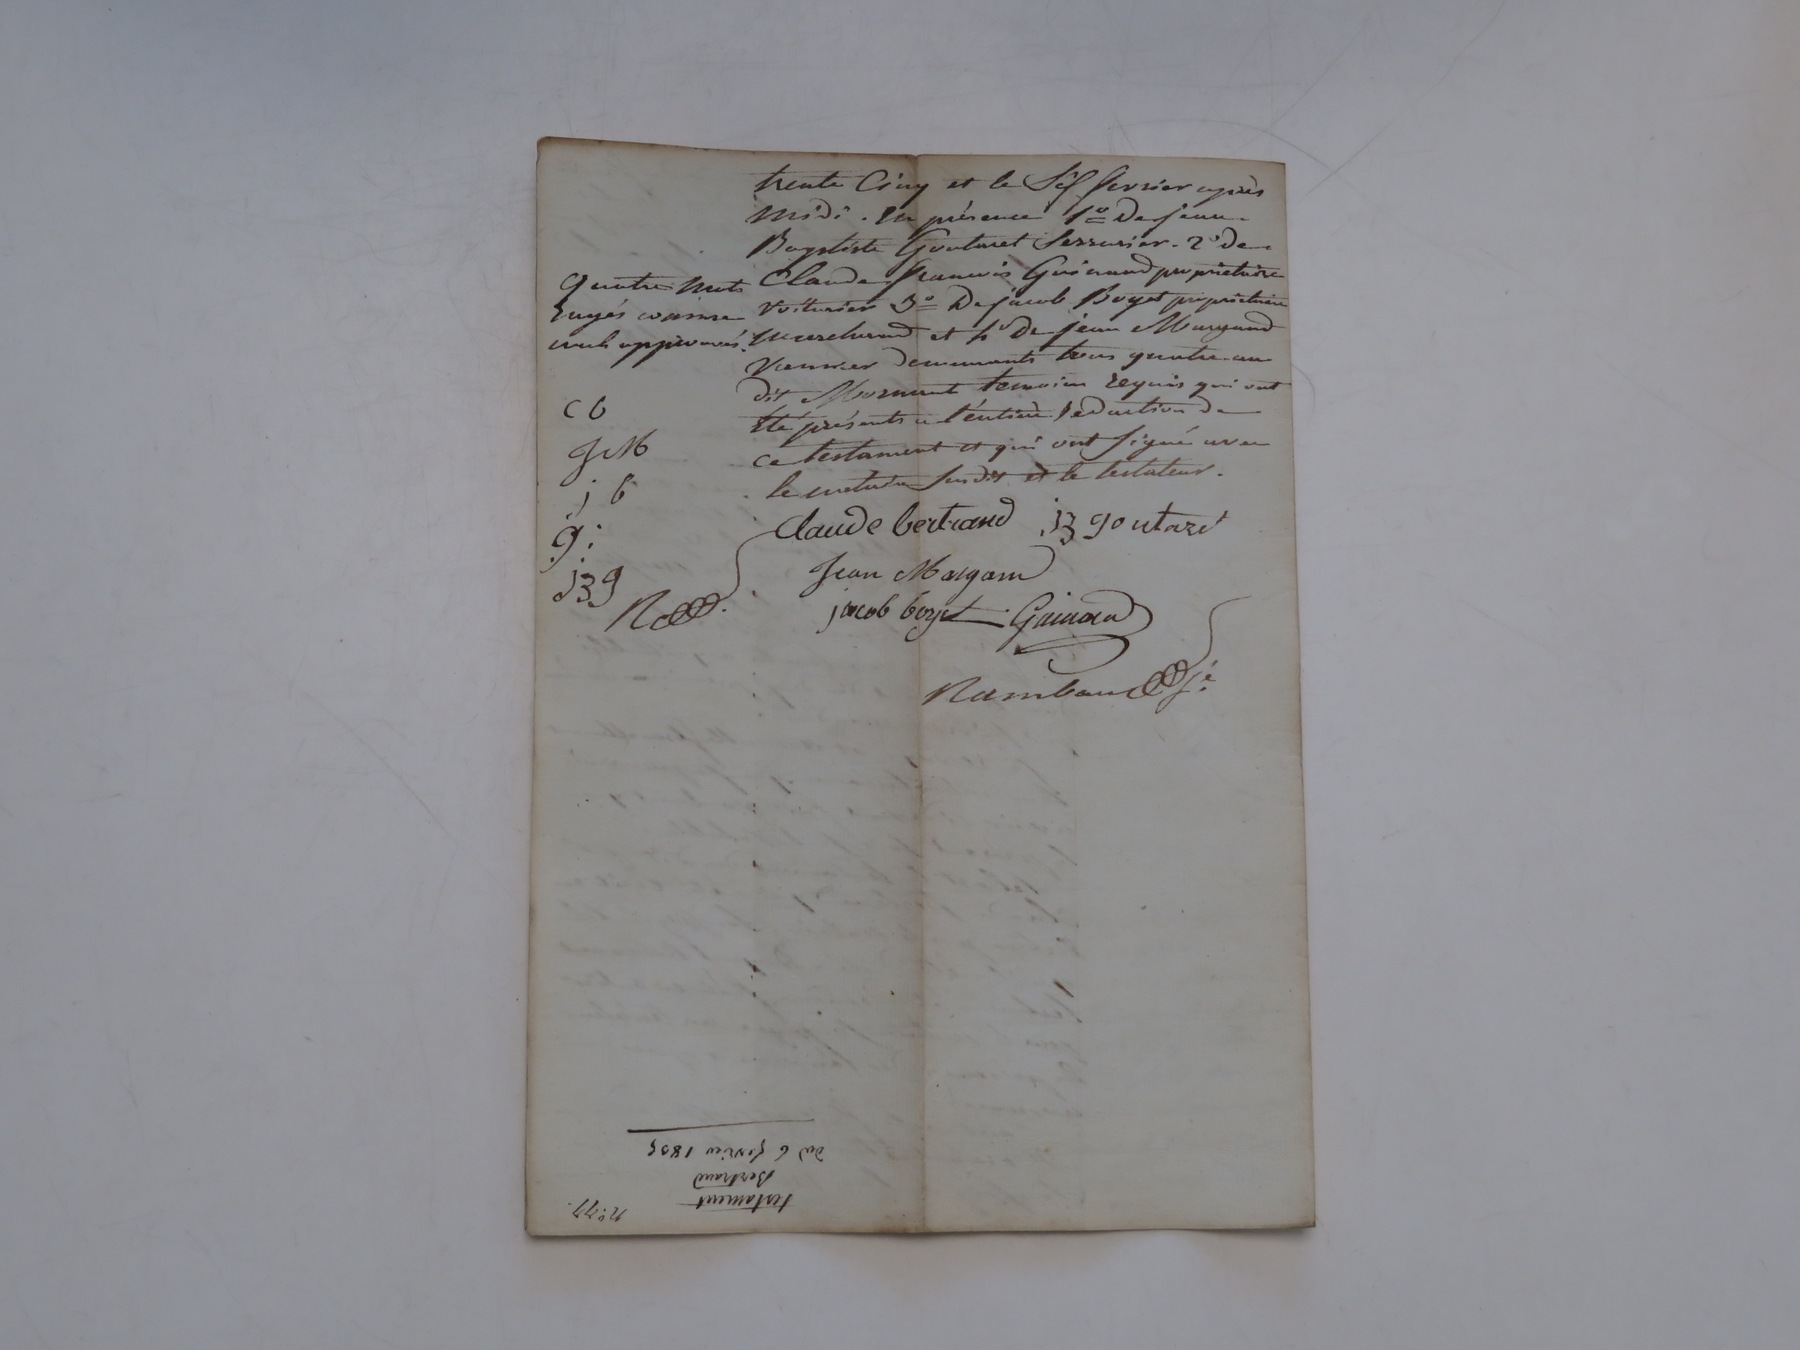 trente Cinq et le Six fevrier après
midi. En présence 1º De jean
Baptiste Goutaret Serrurier. 2º de
Claude francois Guinand propriétaire
voiturier 3º De jacob Boyet propriétaire
marchand et 4º De jean Margand
vannier demeurants tous quatre au
dit Mornant temoins requis qui ont
été présents a l'entiere redaction de
ce testament et qui ont signé avec
le notaire susdit et le testateur.
quatre mots
rayés comme
nuls approuvés.
c b
J M
j b
g :
JBg
Claude bertrand JB goutaret
Jean Margand
jacob boyet Guinand
Rambaud jé
testament
Bertrand
du 6 fevrier 1835
nº 77.